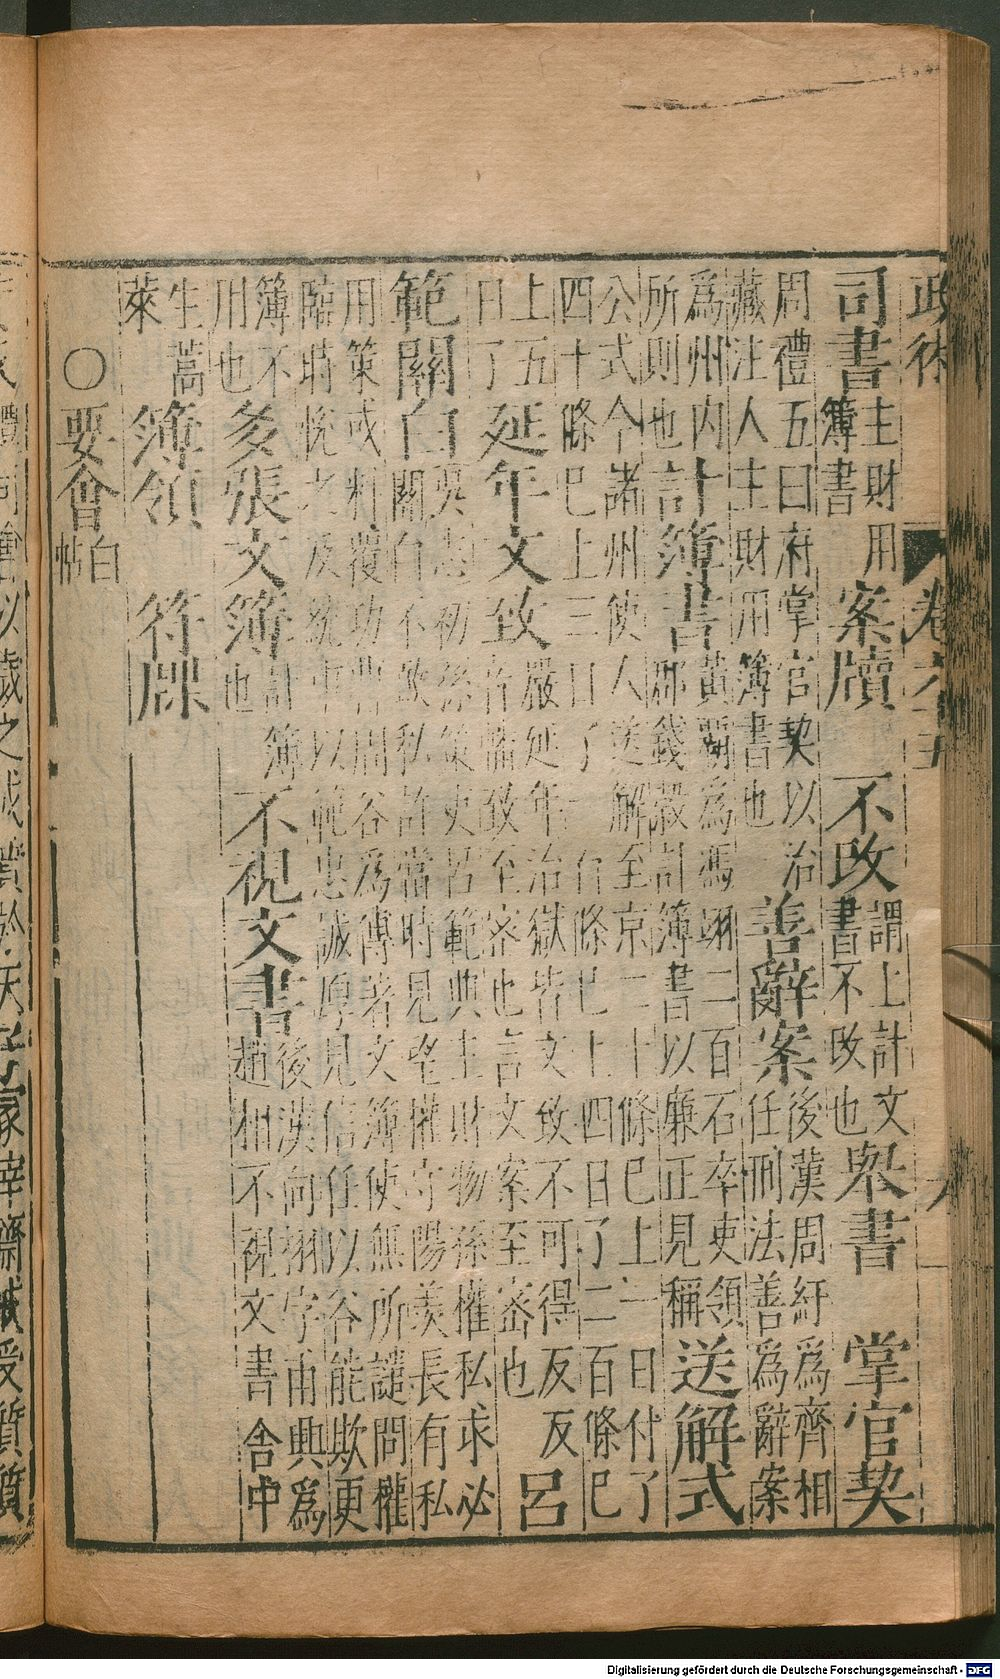 政術 卷六十五
司書 主財用
簿書 案牘 不改 謂上計文
書不改也 舉書 掌官契
周禮五曰府掌官契以治
藏注人主財用簿書也 善辭案 後漢周紆爲齊相
任刑法善爲辭案
爲州内
所則也 計簿書 黃覇爲馮翊二百石卒吏領
郡錢穀計簿書以廉正見稱 送解式
公式令諸州使人送解至京二十條已上一日付了
四十條已上三日了一百條已上四日了二百條已
上五
日了 延年文致 嚴延年治獄皆文致不可得反反
致至密也言文案至密也 呂
範關白 吳志初孫策吏呂範典主財物孫權私求必
關白不敢私許當時見望權守陽羨長有私
用策或料覆功曹周谷爲傅著文簿使無所譴問權
臨時悅之及統事以範忠誠厚見信任以谷能欺更
簿不
用也 多張文簿 計簿
也 不視文書 後漢向栩字甫興爲
趙相不視文書舍中
生蒿
萊 簿領 符牒
○要會 白
帖
禮司會以歲之成質於天子冢宰齋戒受質質
Digitalisierung gefördert durch die Deutsche Forschungsgemeinschaft - DFG